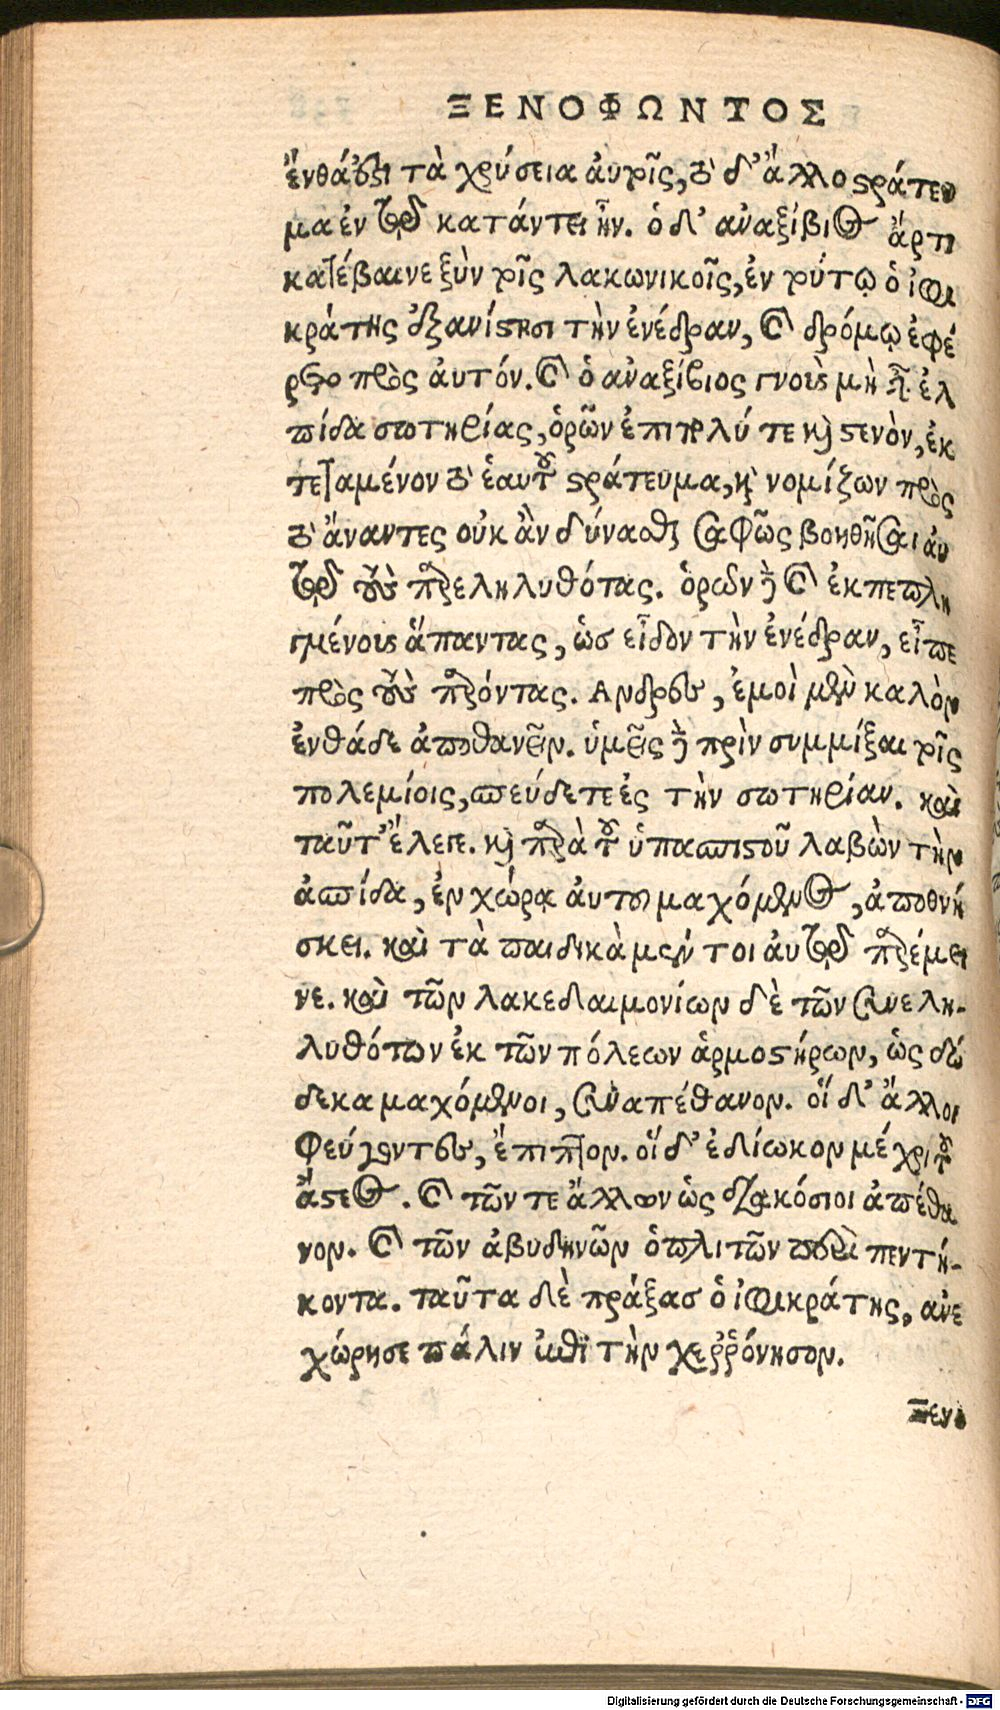 ΞΕΝΟΦΩΝΤΟΣ
ἔνθάπερ τὰ χρύσεια ἀυτοῖς, τὸ δ᾽ ἄλλο στράτευ
μα ἐν τῷ κατάντει ἦν. ὁ δ᾽ αὐαξίβιος ἄρτι
κατέβαινε ξὺν τοῖς λακωνικοῖς, ἐν τούτῳ ὁ ἰφι
κράτης ἐξανίστησι τὴν ἐνέδραν, καὶ δρόμῳ ἐφέ
ρετο πρὸς ἀυτόν. καὶ ὁ ἀναξίβιος γνοὺς μὴ εἶναι ἐλ
πίδα σωτηρίας, ὁρῶν ἐπιπολύ τε καὶ στενὸν, ἐκ
τεταμένον τὸ ἑαυτοῦ στράτευμα, καὶ νομίζων πρὸς
τὸ ἄναντες οὐκ ἂν δύνασθαι σαφῶς βοηθῆσαι ἀυ
τῷ τοὺς παρεληλυθότας. ὁρῶν δὲ καὶ ἐκπεπλη
γμένους ἅπαντας, ὡσ εἶδον τὴν ἐνέδραν, εἶπε
πρὸς τοὺς παρόντας. Ανδρες, ἐμοὶ μὲν καλὸν
ἐνθάδε ἀποθανεῖν. ὑμεῖς δὲ πρὶν συμμίξαι τοῖς
πολεμίοις, σπεύδετε ἐς τὴν σωτηρίαν. καὶ
ταῦτ᾽ ἔλεγε. καὶ παρὰ τοῦ ὑπασπιστοῦ λαβὼν τὴν
ἀσπίδα, ἐν χώρᾳ ἀυτου μαχόμενος, ἀποθνή
σκει. καὶ τὰ παιδικὰ μέν τοι ἀυτῷ παρέμει
νε. καὶ τῶν λακεδαιμονίων δὲ τῶν συνελη-
λυθότων ἐκ τῶν πόλεων ἁρμοστήρων, ὡς δώ
δεκα μαχόμενοι, συναπέθανον. οἱ δ᾽ ἄλλοι
φεύγοντες, ἔπιπτον. οἱ δ᾽ ἐδίωκον μέχρι τοῦ
ἄστεος. καὶ τῶν τε ἄλλων ὡς διακόσιοι ἀπέθα
νον. καὶ τῶν ἀβυδηνῶν ὁπλιτῶν περὶ πεντή-
κοντα. ταῦτα δὲ πράξασ ὁ ἰφικράτης, ἀνε
χώρησε πάλιν ἐπὶ τὴν χεῤῥόνησον.
Ξενο
Digitalisierung gefördert durch die Deutsche Forschungsgemeinschaft - DFG